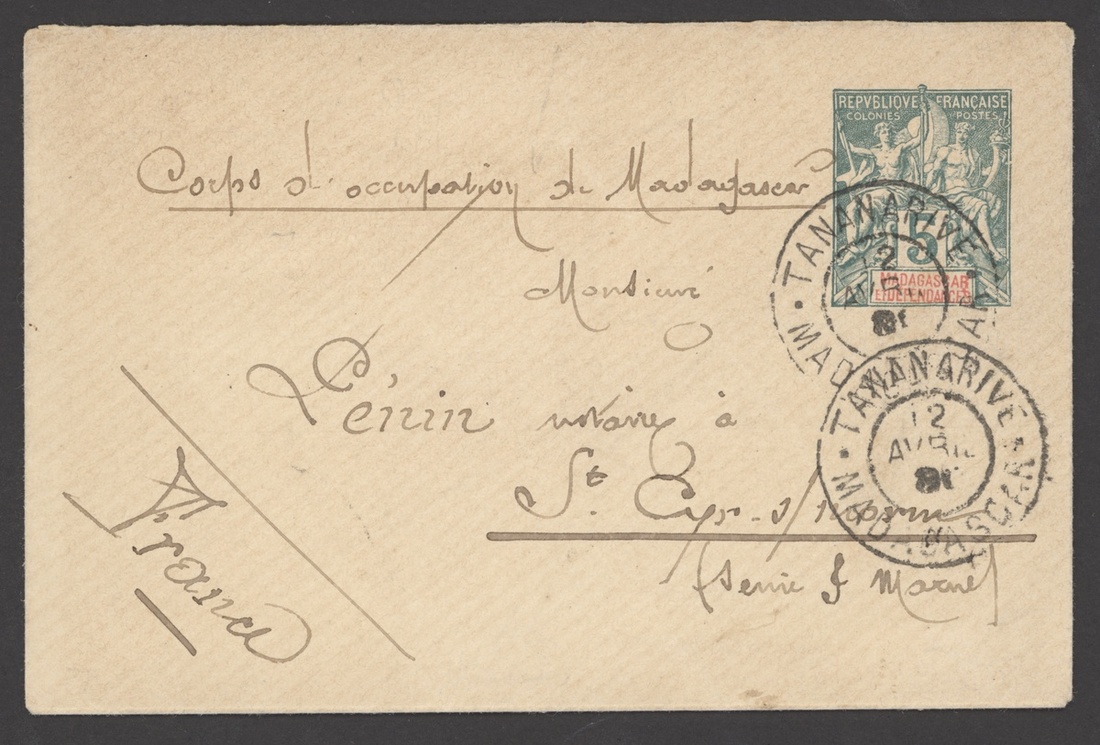 REPVBLIQVE FRANÇAISE
COLONIES POSTES
5
MADAGASCAR
ET DÉPENDANCES
Corps d'occupation de Madagascar
TANANARIVE
12
AVRIL
MADAGASCAR
Monsieur
Lénin notaire à
St Cyr-s/morin
(Seine & Marne)
France
TANANARIVE
12
AVRIL
MADAGASCAR